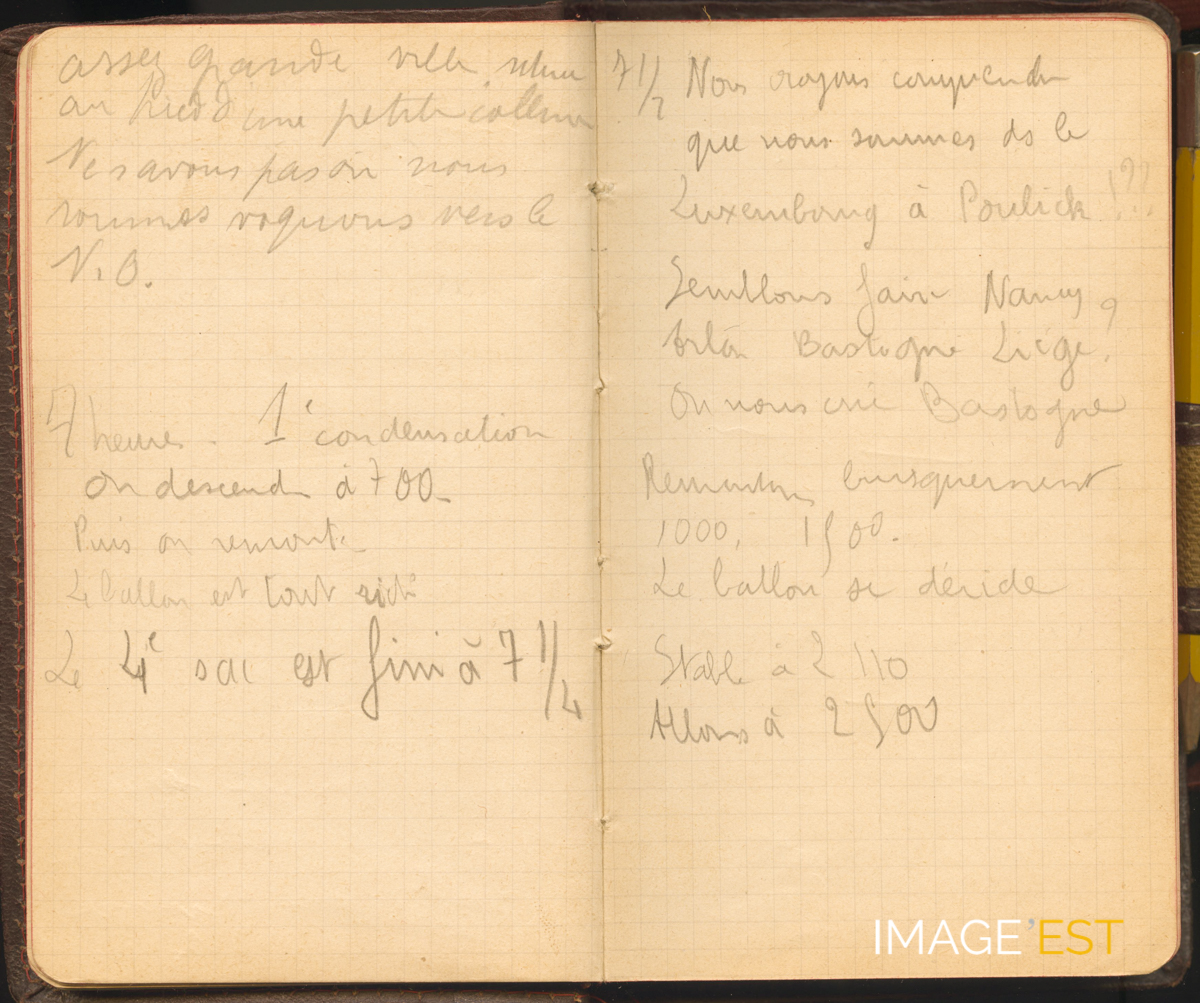 assez grande ville située
au pied d'une petite colline
Ne savons pas où nous
sommes voguons vers le
N.O.
7 heures. 1e condensation
on descend à 700
Puis on remonte
Le ballon est tout ridé
Le 4e sac est fini à 7 1/4
7 1/2 Nous croyons comprendre
que nous sommes ds le
Luxembourg à Poulick !??
Semblons faire Nancy
Arlon Bastogne Liège ?
On nous crie Bastogne
Remontons brusquement
1000, 1500.
Le ballon se déride
Stable à 2110
Allons à 2500
IMAGE'EST